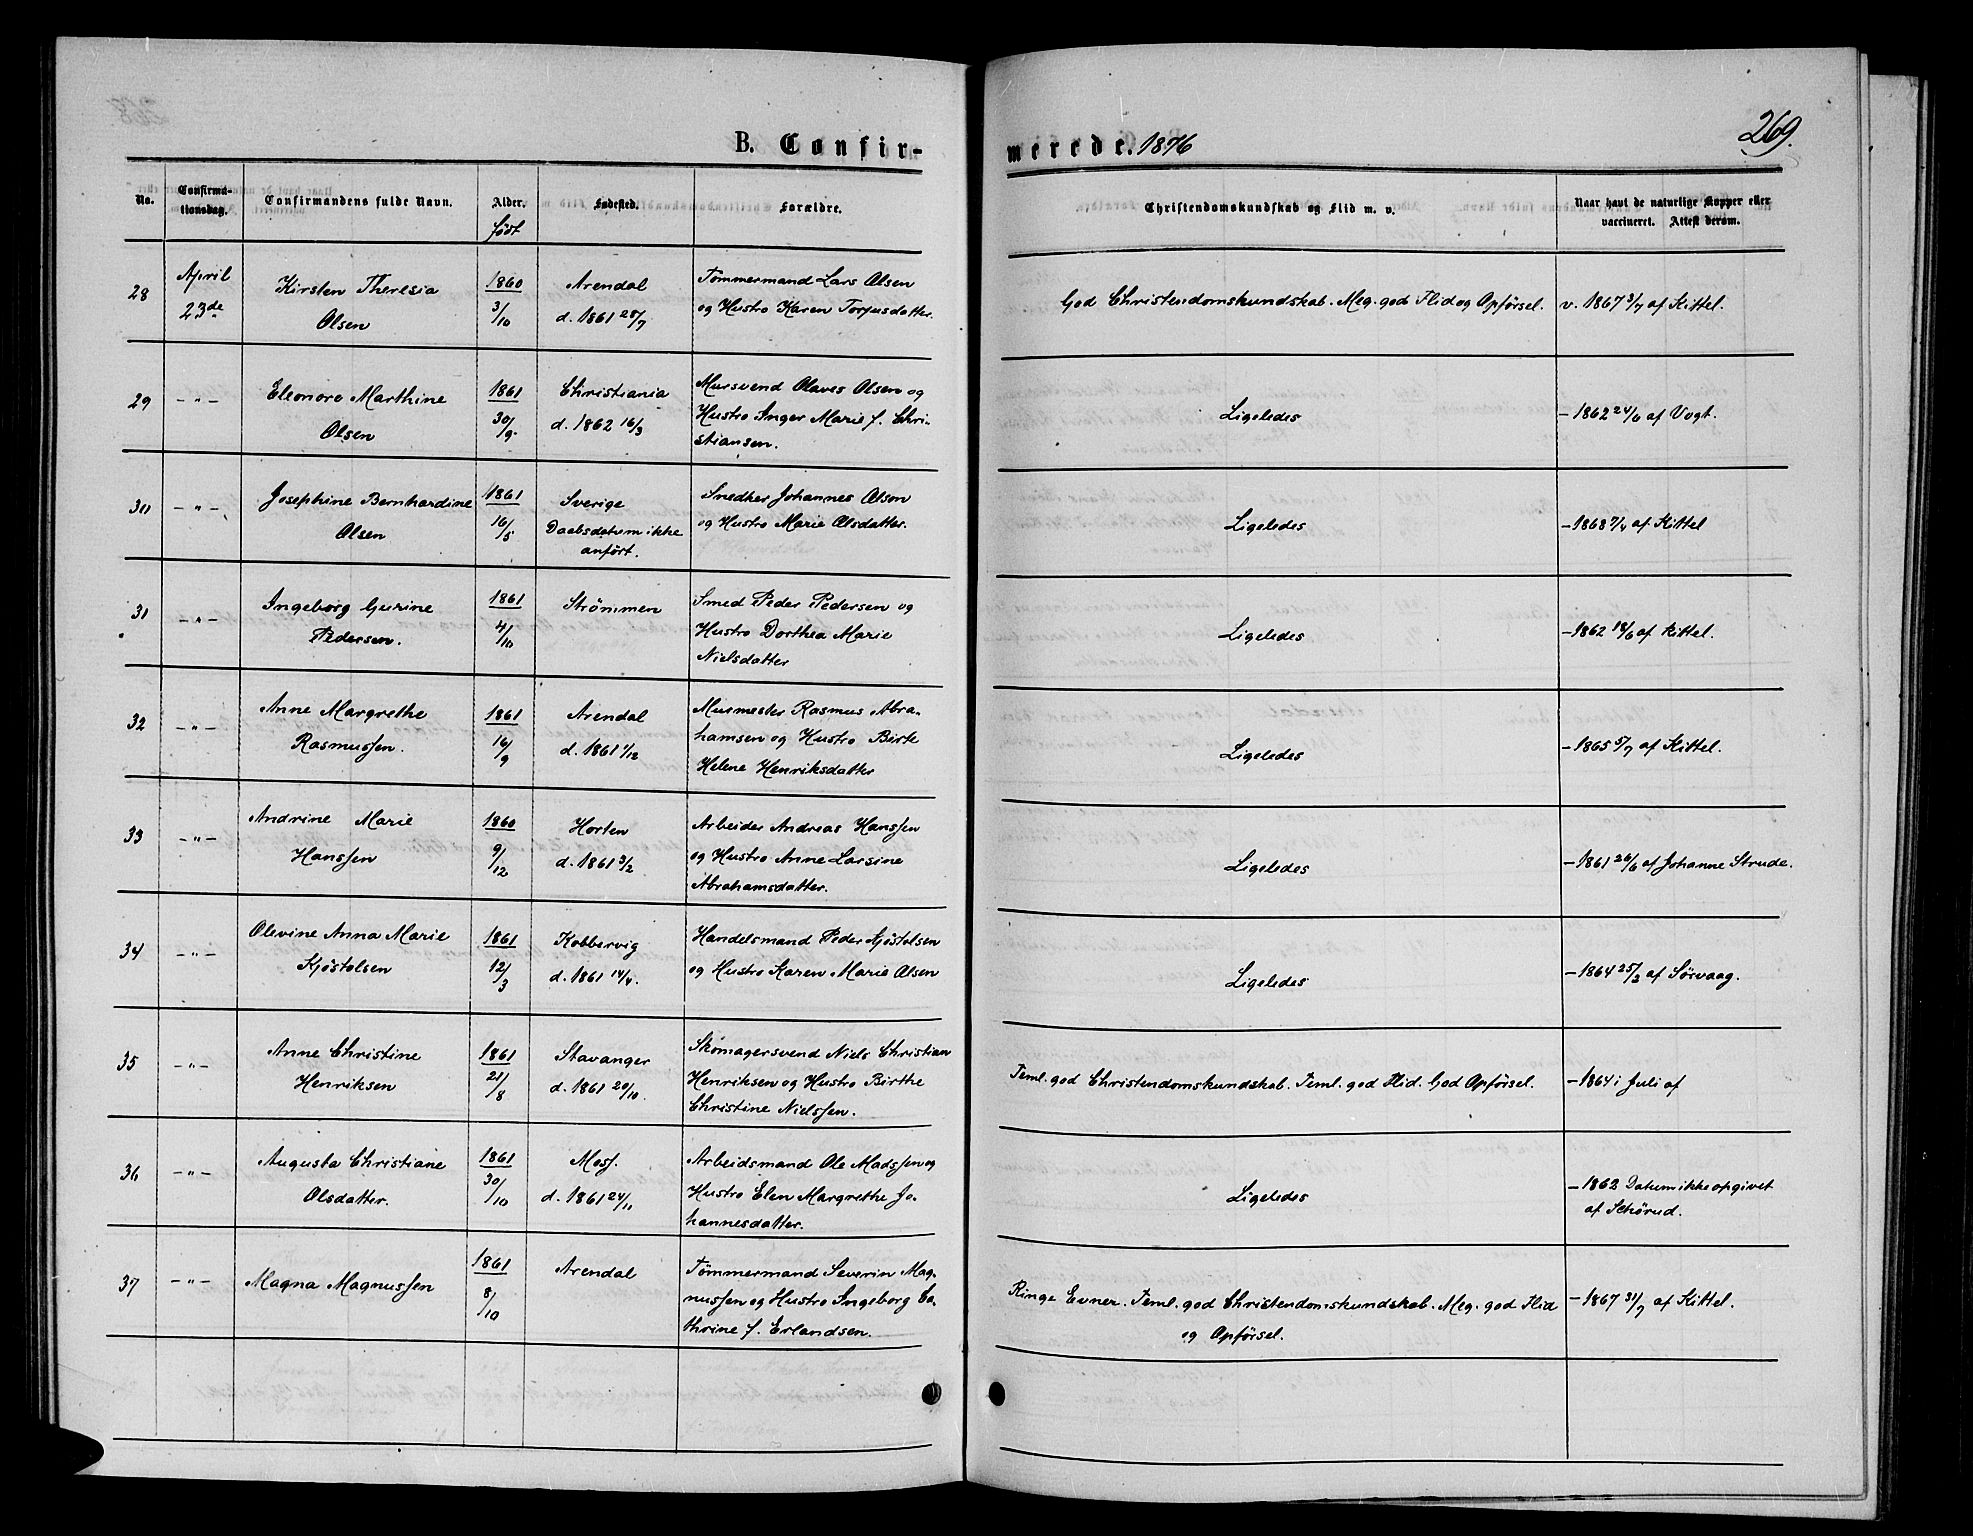 269.
B. Confir-
merede. 1876
No.
Confirma-
tionsdag.
Confirmandens fulde Navn.
Alder.
født
Fødested.
Forældre.
Christendomskundskab og Flid m. v.
Naar havt de naturlige Kopper eller
vaccineret. Attest derom.
28
April
23de
Kirsten Theresia
Olsen
1860
3/10
Arendal
d. 1861 28/7
Tømmermand Lars Olsen
og Hustro Karen Torjusdatter.
God Christendomskundskab. Meg. god Flid og Opførsel.
v. 1867 3/7 af Kittel.
29
-"-
Eleonore Marthine
Olsen
1861
30/9.
Christiania
d. 1862 16/3
Mursvend Olaves Olsen og
Hustro Inger Marie f. Chri-
stiansen.
Ligeledes
- 1862 24/6 af Vogt.
30
-"-
Josephine Bernhardine
Olsen
1861
16/5
Sverige
Daabsdatum ikke
anført.
Snedker Johannes Olson
og Hustro Marie Olsdatter.
Ligeledes
- 1868 7/4 af Kittel
31
-"-
Ingeborg Gurine
Pedersen.
1861
4/10
Strømmen
Smed Peder Pedersen og
Hustro Dorthea Marie
Nielsdatter
Ligeledes
- 1862 18/6 af Kittel.
32
-"-
Anne Margrethe
Rasmussen.
1861
16/9
Arendal
d. 1861 1/12
Murmester Rasmus Abra-
hamsen og Hustro Birte
Helene Henriksdatter
Ligeledes
- 1865 5/7 af Kittel.
33
-"-
Andrine Marie
Hanssen
1860
9/12
Horten
d. 1861 3/2
Arbeider Andreas Hanssen
og Hustro Anne Larsine
Abrahamsdatter.
Ligeledes
- 1861 26/6 af Johanne Strude.
34
-"-
Olevine Anna Marie
Kjøstolsen
1861
12/3
Kobbervig
d. 1861 14/4.
Handelsmand Peder Kjøstolsen
og Hustro Karen Marie Olsen
Ligeledes
- 1864 25/2 af Sørvaag.
35
-"-
Anne Christine
Henriksen
1861
21/8
Stavanger
d. 1861 20/10.
Skomagersvend Niels Christian
Henriksen og Hustro Birthe
Christine Nielssen.
Teml. god Christendomskundskab. Teml. god Flid. God Opførsel.
- 1864 i Juli af
36
-"-
Augusta Christiane
Olsdatter.
1861
30/10
Moss.
d. 1861 24/11
Arbeidsmand Ole Madssen og
Hustro Elen Margrethe Jo-
hannesdatter.
Ligeledes
- 1862 Datum ikke opgivet
af Schørud.
37
-"-
Magna Magnussen
1861
8/10
Arendal
Tømmermand Severin Mag-
nussen og Hustro Ingeborg Ca-
thrine f. Erlandsen.
Ringe Evner. Teml. god Christendomskundskab. Meg. god Flid
og Opførsel.
- 1867 31/7 af Kittel.